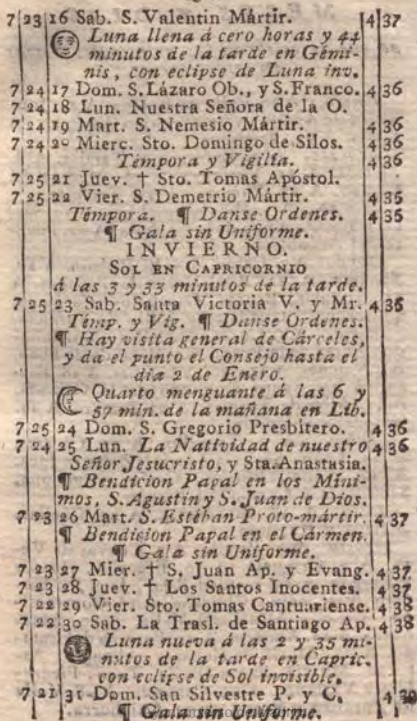 7 23 16 Sab. S. Valentin Mártir. 4 37
Luna llena á cero horas y 44
minutos de la tarde en Gémi-
nis, con eclipse de Luna inv.
7 24 17 Dom. S. Lázaro Ob., y S. Franco. 4 36
7 24 18 Lun. Nuestra Señora de la O.
7 24 19 Mart. S. Nemesio Mártir. 4 36
7 24 20 Mierc. Sto. Domingo de Silos. 4 36
Témpora y Vigilia. 4 36
7 25 21 Juev. † Sto. Tomas Apóstol.
7 25 22 Vier. S. Demetrio Mártir. 4 35
Témpora. ¶ Danse Ordenes. 4 35
¶ Gala sin Uniforme.
INVIERNO.
SOL EN CAPRICORNIO
á las 3 y 33 minutos de la tarde.
7 25 23 Sab. Santa Victoria V. y Mr. 4 35
Témp. y Vig. ¶ Danse Ordenes.
¶ Hay visita general de Cárceles,
y da el punto el Consejo hasta el
dia 2 de Enero.
Quarto menguante á las 6 y
57 min. de la mañana en Lib.
7 25 24 Dom. S. Gregorio Presbítero. 4 36
7 24 25 Lun. La Natividad de nuestro 4 36
Señor Jesucristo, y Sta. Anastasia.
¶ Bendicion Papal en los Míni-
mos, S. Agustin y S. Juan de Dios.
7 23 26 Mart. S. Estéban Proto-mártir. 4 37
¶ Bendicion Papal en el Cármen.
¶ Gala sin Uniforme.
7 23 27 Mier. † S. Juan Ap. y Evang. 4 37
7 23 28 Juev. † Los Santos Inocentes. 4 37
7 22 29 Vier. Sto. Tomas Cantuariense. 4 38
7 22 30 Sab. La Trasl. de Santiago Ap. 4 38
Luna nueva á las 2 y 35 mi-
nutos de la tarde en Capric.
con eclipse de Sol invisible.
7 21 31 Dom. San Silvestre P. y C. 4
¶ Gala sin Uniforme.